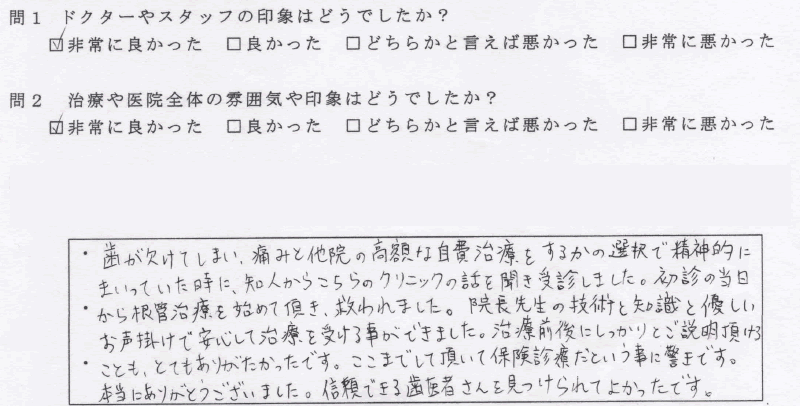 問1 ドクターやスタッフの印象はどうでしたか？
☑非常に良かった □良かった □どちらかと言えば悪かった □非常に悪かった
問2 治療や医院全体の雰囲気や印象はどうでしたか？
☑非常に良かった □良かった □どちらかと言えば悪かった □非常に悪かった
・歯が欠けてしまい、痛みと他院の高額な自費治療をするかの選択で精神的に
まいっていた時に、知人からこちらのクリニックの話を聞き受診しました。初診の当日
・から根管治療を始めて頂き、救われました。院長先生の技術と知識と優しい
お声掛けで安心して治療を受ける事ができました。治療前後にしっかりとご説明頂ける
・ことも、とてもありがたかったです。ここまでして頂いて保険診療だという事に驚きです。
本当にありがとうございました。信頼できる歯医者さんを見つけられてよかったです。